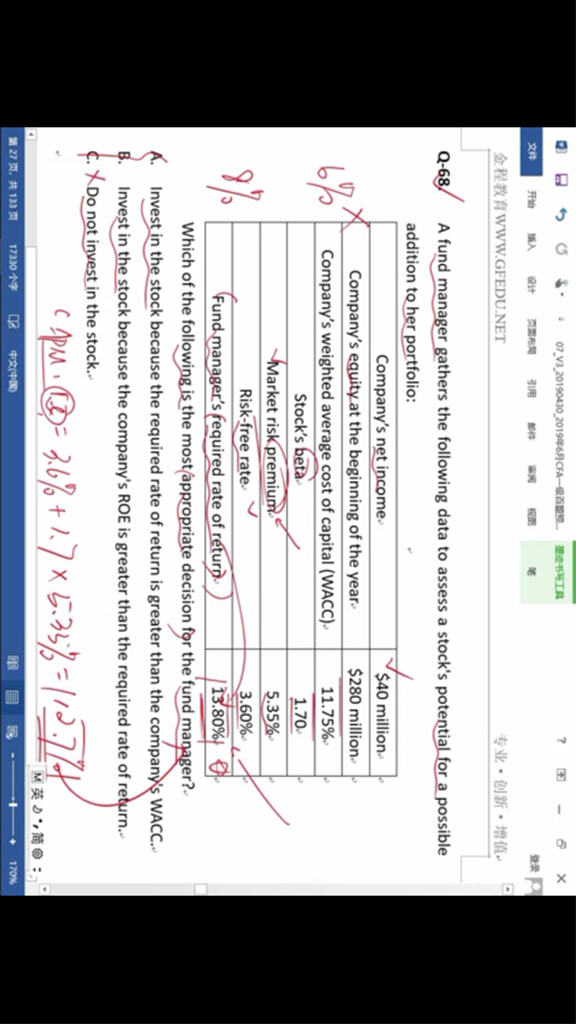 07_V3_20190430_2019年6月CFA一级百题预...
墨迹书写工具
登录
文件 开始 插入 设计 页面布局 引用 邮件 审阅 视图 笔
金程教育WWW.GFEDU.NET 专业·创新·增值
Q-68 A fund manager gathers the following data to assess a stock's potential for a possible
addition to her portfolio:
Company's net income $40 million
Company's equity at the beginning of the year $280 million
Company's weighted average cost of capital (WACC) 11.75%
Stock's beta 1.70
Market risk premium 5.35%
Risk-free rate 3.60%
Fund manager's required rate of return 13.80%
6%
8%
Which of the following is the most appropriate decision for the fund manager?
A. Invest in the stock because the required rate of return is greater than the company's WACC.
B. Invest in the stock because the company's ROE is greater than the required rate of return.
C. Do not invest in the stock.
= 3.6% + 1.7 × 5.35% = 12.7%
M 英 简
第 27 页，共 133 页 17330 个字 中文(中国) 170%